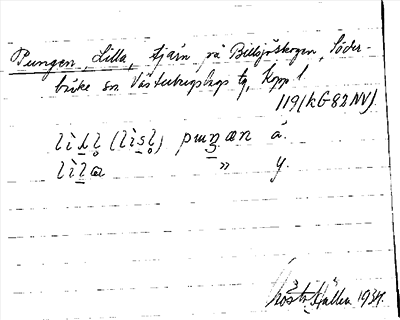 Pungen, Lilla, tjärn på Billsjöskogen, Söder-
bärke sn Västerbergslags tg, Kopp l.
119 (KG 82 NV)
lìsl̥ (lìsl̥) puŋən ä.
lìla " y.
Hällen 1934.